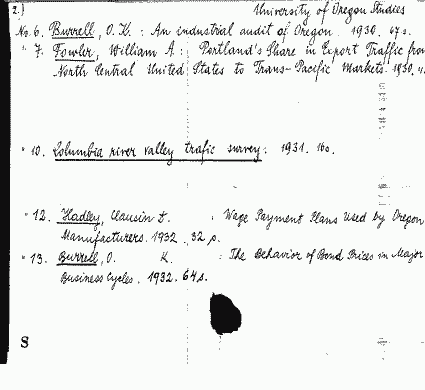 2.) University of Oregon Studies
No. 6. Burrell, O. K. : An industrial audit of Oregon. 1930. 47s.
" 7. Fowler, William A : Portland's Share in Export Traffic from
North Central United States to Trans-Pacific Markets. 1930.
" 10. Columbia river valley trafic survey: 1931. 16s.
" 12. Hadley, Clausin D. : Wage Payment Plans Used by Oregon
Manufacturers. 1932. 32 s.
" 13. Burrell, O. K. : The Behavior of Bond Prices in Major
Business Cycles. 1932. 64s.
S